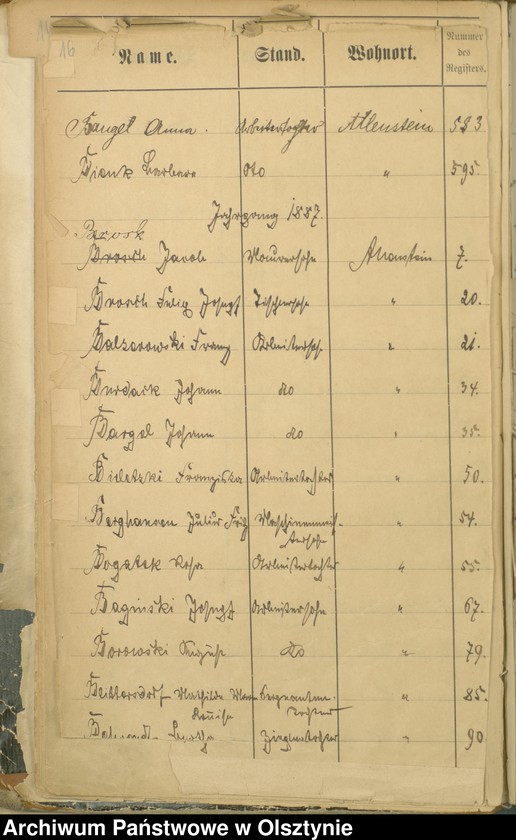 16
Name. Stand. Wohnort. Nummer des Registers.
Bangel Anna. Arbeitertochter Allenstein 583
Bienk Barbara dto " 595.
Jahrgang 1887.
Brosk
Brosch Jacob Maurersohn Allenstein 7.
Brosch Felix Josef Tischlersohn " 20.
Balzerowski Franz Arbeitersohn " 21.
Burdack Johann do " 34.
Bargel Johann do " 35.
Bieletzki Franziska Arbeitertochter " 50.
Berghausen Julius Fritz Maschinenmeis- " 54.
tersohn
Bogatek Rosa Arbeitertochter " 55.
Baginski Josef Arbeitersohn " 67.
Borowski August dto " 79.
Mathilde Sergeanten- " 85.
Louise tochter
Bertha Zieglertochter " 90
Archiwum Państwowe w Olsztynie